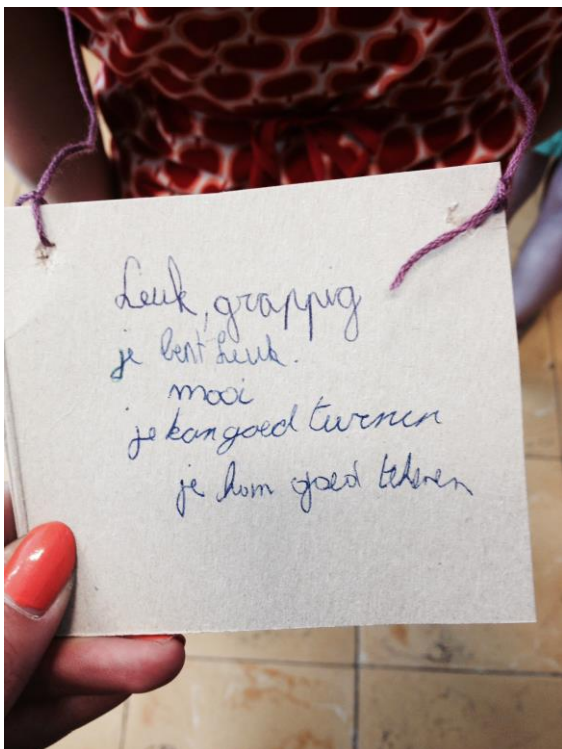 Leuk, grappig
je bent leuk.
mooi
je kan goed turnen
je kan goed tekenen